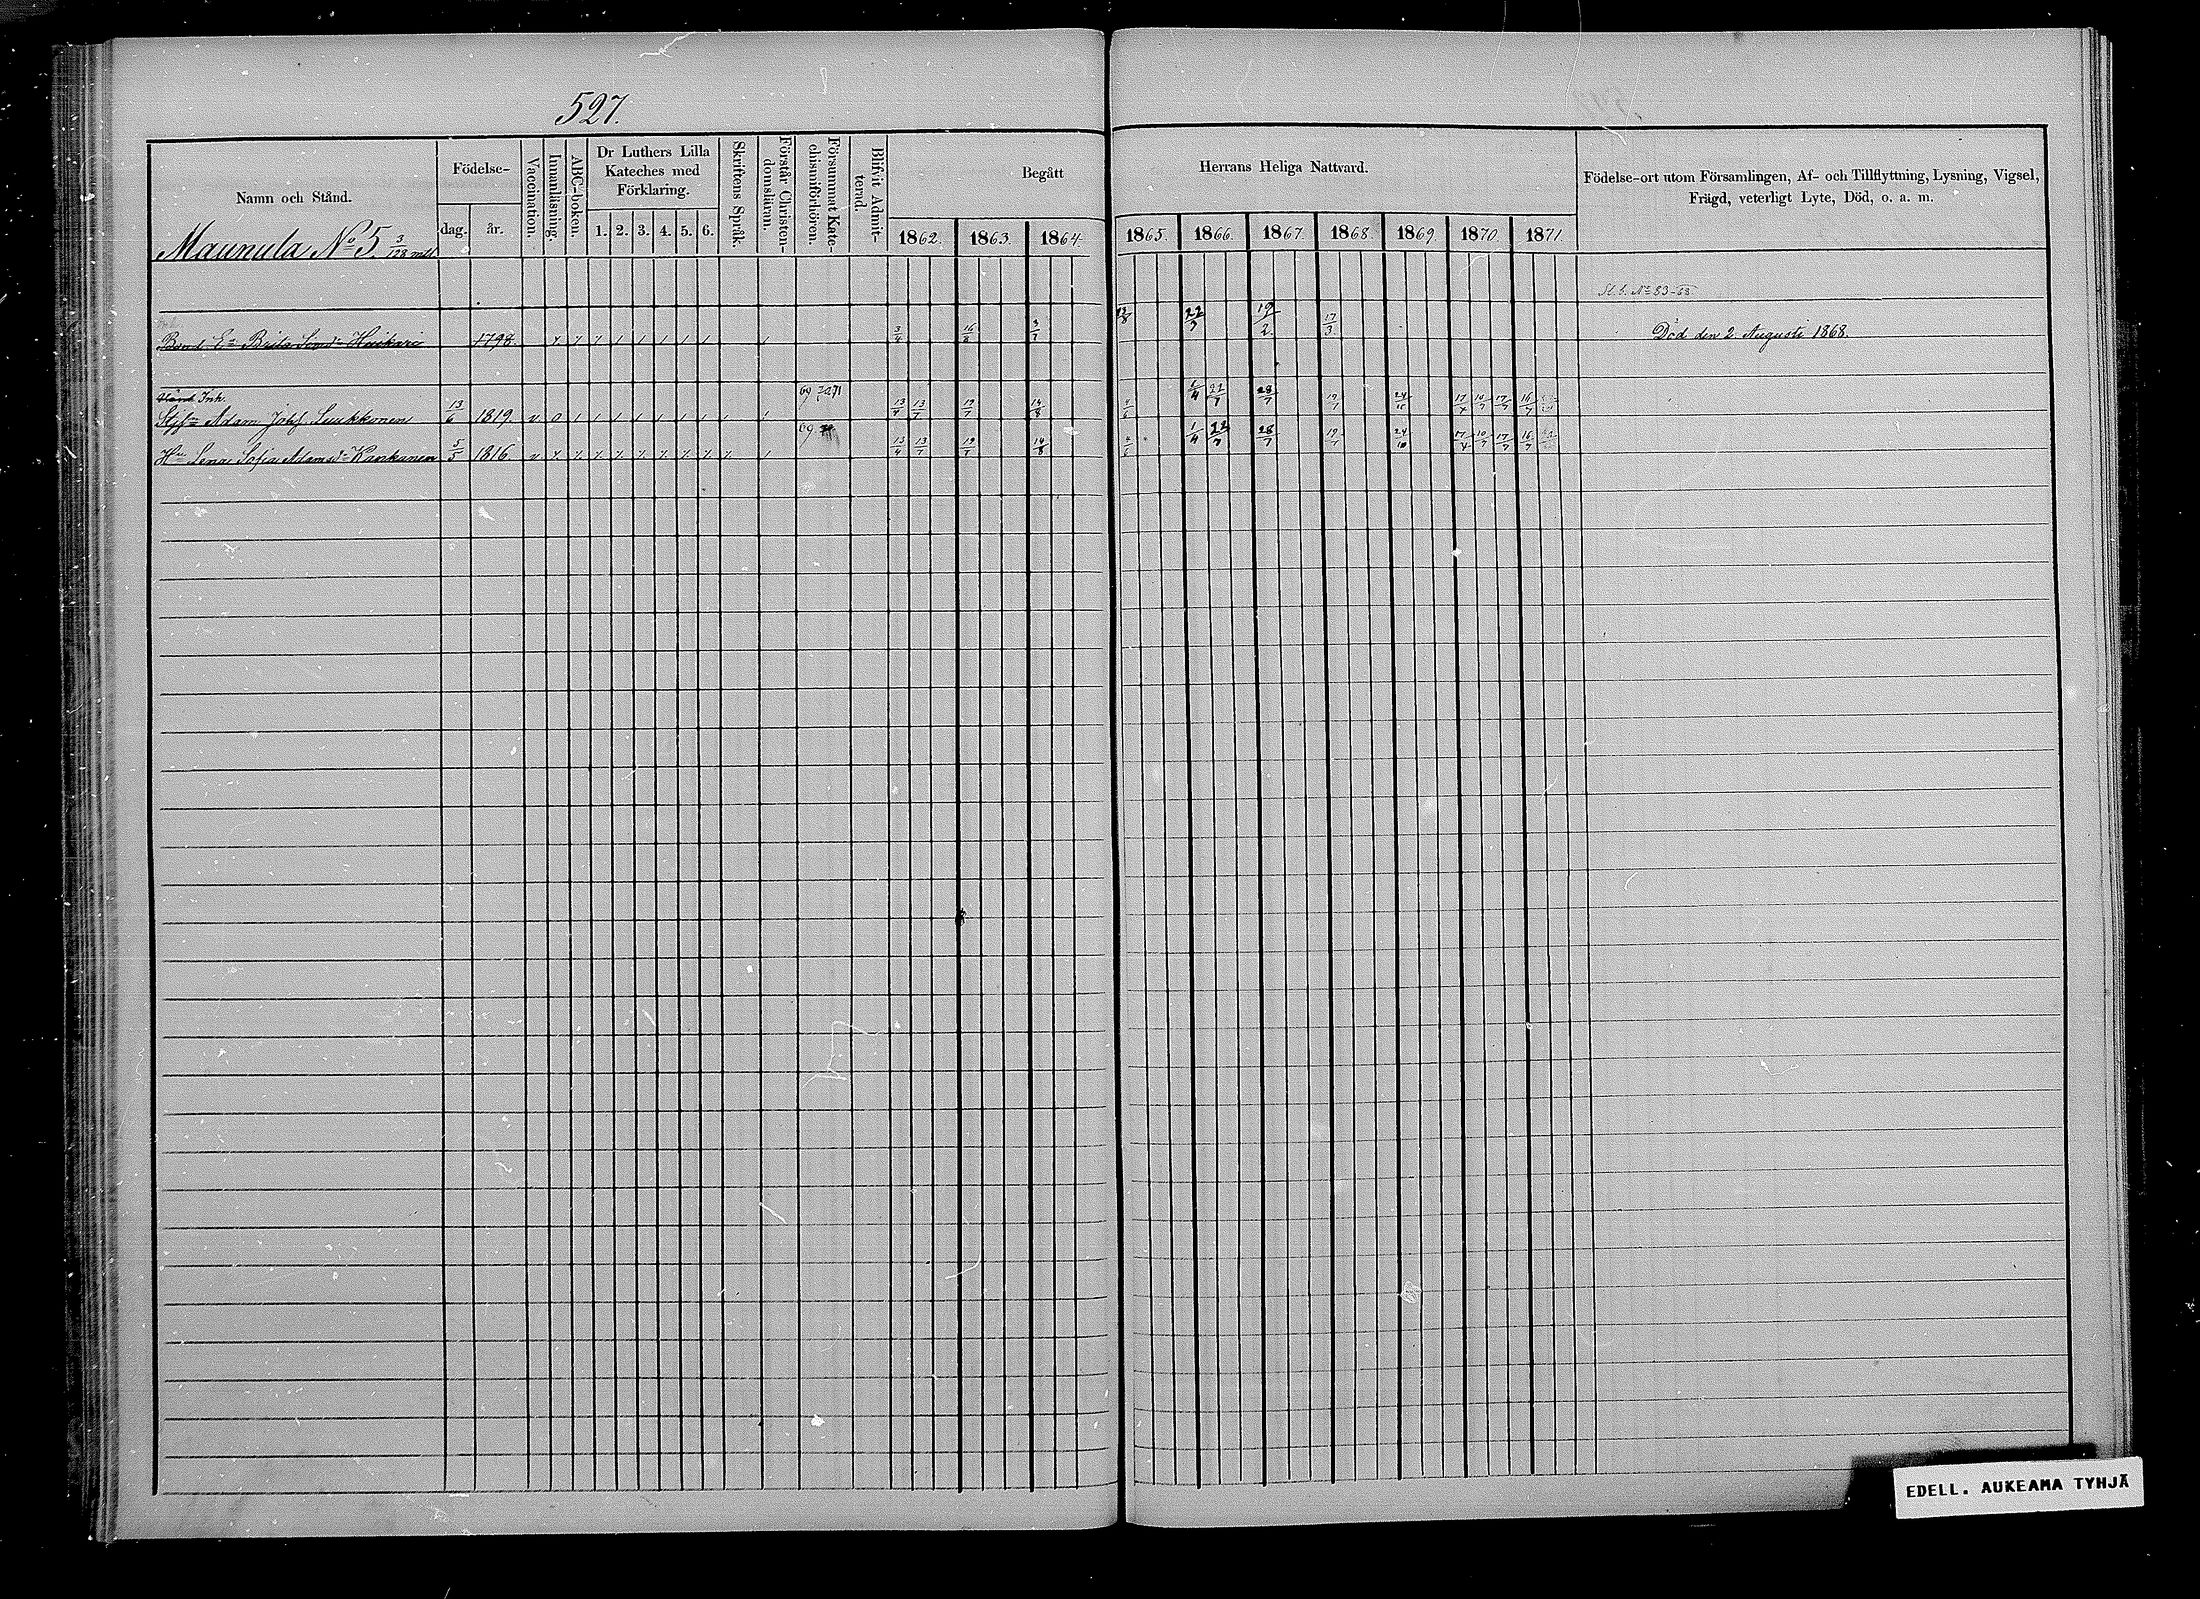 527.
Namn och Stånd.
Födelse-
dag. år.
Vaccination.
Innanläsning.
ABC-boken.
Dr Luthers Lilla
Kateches med
Förklaring.
1. 2. 3. 4. 5. 6.
Skriftens Språk.
Förstår Christen-
domsläran.
Försummat Kate-
chismiförhören.
Blifvit Admit-
terad.
Begått Herrans Heliga Nattvard.
1862. 1863. 1864. 1865. 1866. 1867. 1868. 1869. 1870. 1871.
Födelse-ort utom Församlingen, Af- och Tillflyttning, Lysning, Vigsel,
Frägd, veterligt Lyte, Död, o. a. m.
Maunula No 5. 3/128 mtl
Bond. Ea Brita Simsdr Huikari 1798. 3/4 16/8 3/7 22/7 19/2 17/3 Död den 2 Augusti 1868.
Inh.
Adam Johf. Suukkonen 13/6 1819. v 0 13/4 13/7 19/7 14/8 4/6 1/4 22/7 28/7 19/7 24/10 17/4 10/7 17/7 16/7
Hu Lena Sofia Adamsdr Kankunen 5/5 1816 v 69 13/4 13/7 19/7 14/8 4/6 1/4 22/7 28/7 19/7 24/10 17/4 10/7 17/7 16/7
EDELL. AUKEAMA TYHJÄ